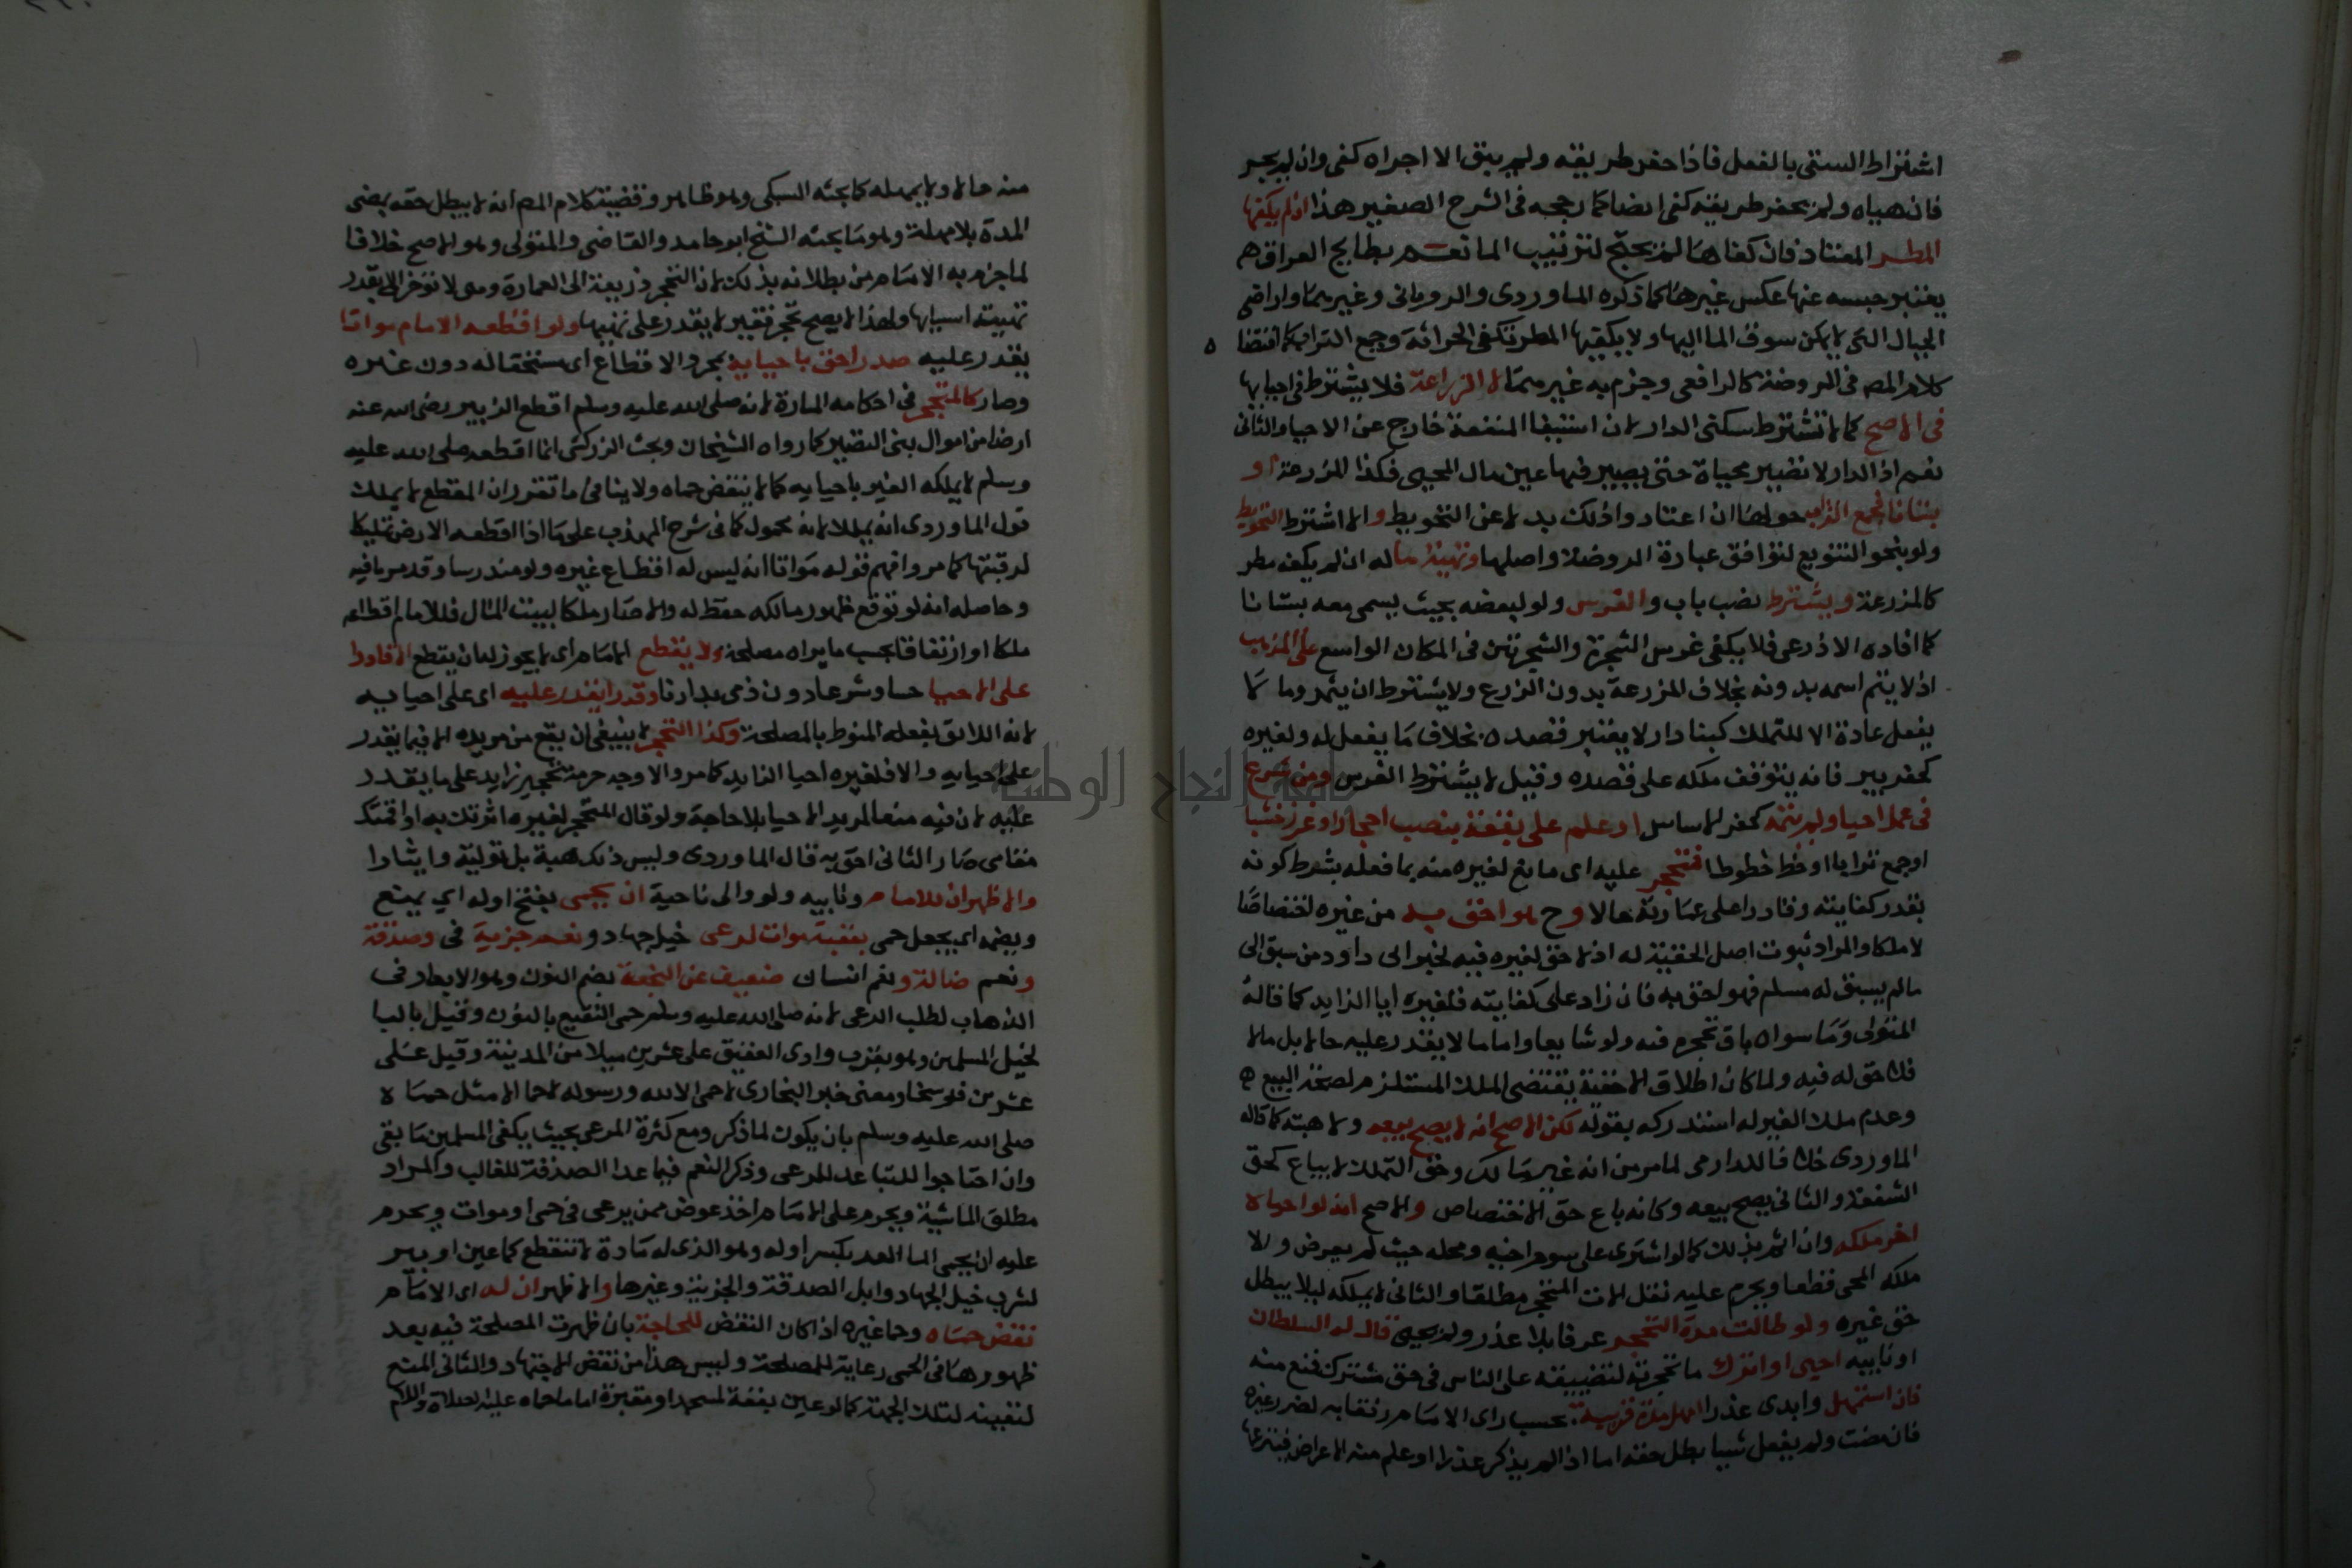 اشتراط السقى بالفعل فاذا حفر طريقه ولم يبق الا اجراه كفى وان لم يجر
فان هياه ولم يحفر طريقه كفى ايضا كما رجحه فى الشرح الصغير هذا ان لم يكفها
المطر المعتاد فان كفاها لم يحتج لترتيب الما نعم بطايح العراق
يعتبر حبسه عنها عكس غيرها كما ذكره الماوردى والرويانى وغيرهما واراضى
الجبال التى لا يمكن سوق الما اليها ولا يكفيها المطر تكفى الحراثة وجمع التراب كما اقتضا
كلام المص فى الروضة كالرافعى وجزم به غيرهما لا الزراعة فلا يشترط فى احيايها
فى الاصح كما لا تشترط سكنى الدار لان استيفا المنفعة خارج عن الاحيا والثانى
نعم اذ الدار لا تصير محياة حتى يصير فيها عين مال المحيى فكذا المزرعة او
بستانا فجمع التراب حولها ان اعتادوا ذلك بدلا عن التحويط والا اشترط التحويط
ولو بنحو التنويع لتوافق عبارة الروضة واصلها وتهيئة ما له ان لم يكفه مطر
كالمزرعة ويشترط نصب باب والغرس ولو لبعضه بحيث يسمى معه بستانا
كما افاده الاذرعى فلا يكفى غرس الشجرة والشجرتين فى المكان الواسع على المذهب
اذ لا يتم اسمه بدونه بخلاف المزرعة بدون الزرع ولا يشترط ان يثمر وما لا
يفعل عادة الا للتملك كبنا دار لا يعتبر قصده بخلاف ما يفعل له ولغيره
كحفر بير فانه يتوقف ملكه على قصده وقيل لا يشترط الغرس ومن شرع
فى عمل احيا ولم يتمه كحفر الاساس او علم على بقعة بنصب احجار او غرز خشبا
او جمع ترابا او خط خطوطا فتحجر عليه اى مانع لغيره منه بما فعله بشرط كونه
بقدر كفايته وقادرا على عمارته حالا وح هو احق به من غيره اختصاصا
لا ملكا والمراد ثبوت اصل الحقية له اذ لا حق لغيره فيه لخبر ابى داود من سبق الى
مالم يسبق له مسلم فهو احق به فان زاد على كفايته فلغيره احيا الزايد كما قاله
المتولى وما سواه باق تحجره فيه ولو شايعا واما ما لا يقدر عليه حالا بل مالا
فلا حق له فيه ولما كان اطلاق الاحقية يقتضى الملك المستلزم لصحة البيع
وعدم ملك الغير له استدركه بقوله لكن الاصح انه لا يصح بيعه ولا هبته كما قاله
الماوردى خلافا للدارمى لما مر من انه غير مالك وحق التملك لا يباع كحق
الشفعة والثانى يصح بيعه وكانه باع حق الاختصاص والاصح انه لو احياه
اخر ملكه وان اثم بذلك كما لو اشترى على سوم اخيه ومحله حيث لم يعرض والا
ملكه المحى قطعا ويحرم عليه نقل الات المتحجر مطلقا والثانى لا يملكه ليلا يبطل
حق غيره ولو طالت مدة التحجر عرفا بلا عذر ولم يحيى قال له السلطان
او نايبه احيى او اترك ما تحجرته لتضييقه على الناس فى حق مشترك فمنع منه
فان استمهل وابدى عذرا امهل مدة قريبة بحسب راى الامام رفقا به لضرر غيره
فان مضت ولم يفعل شيا بطل حقه اما اذا لم يذكر عذرا او علم منه الاعراض فينزعها
منه حالا ولا يمهله كما بحثه السبكى وهو ظاهر وقضية كلام المص انه لا يبطل حقه بمضى
المدة بلا مهلة وهو ما بحثه الشيخ ابو حامد والقاضى والمتولى وهو الاصح خلافا
لما جزم به الامام من بطلانه بذلك لان التحجر ذريعة الى العمارة وهى لا توخر الا بقدر
تهيئة اسبابها ولهذا لا يصح تحجر فقير لا يقدر على تهيتها ولو اقطعه الامام مواتا
يقدر عليه صار احق باحيايه بمجرد الاقطاع اى مستحقا له دون غيره
وصار كالمتحجر فى احكامه المارة لانه صلى الله عليه وسلم اقطع الزبير رضى الله عنه
ارضا من اموال بنى النضير كما رواه الشيخان وبحث الزركشى انما اقطعه صلى الله عليه
وسلم لا يملكه الغير باحيايه كما لا ينقض حماه ولا ينافى ما تقرر ان المقطع لا يملك
قول الماوردى انه يملك لانه محمول كما فى شرح المهذب على ما اذا اقطعه الارض تمليكا
لرقبتها كما مر وافهم قوله مواتا انه ليس له اقطاع غيره ولو مندرسا وقد مر ما فيه
وحاصله انه لو توقع ظهور مالكه حفظ له والا صار ملكا لبيت المال فللامام اقطاعه
ملكا او ارتفاقا بحسب ما يراه مصلحة ولا يقطع الامام اى لا يجوز له ان يقطع الا قادرا
على الاحيا حسا وشرعا دون ذمى بدارنا وقدرا يقدر عليه اى على احيايه
لانه اللائق بفعله المنوط بالمصلحة وكذا التحجر لا ينبغى ان يقع من مريده الا فيما يقدر
على احيايه والا فلغيره احيا الزايد كما مر والاوجه حرمة تحجير زايد على ما يقدر
عليه لان فيه منعا لمريد الاحيا بلا حاجة ولو قال المتحجر لغيره اثرتك به او اقمتك
مقامى صار الثانى احق به قال الماوردى وليس ذلك هبة بل تولية وايثارا
والاظهر ان للامام ونايبه ولو والى ناحية ان يحمى بفتح اوله اي يمنع
وبضمه اى يجعل حمى بقعة موات لرعى خيل جهاد ونعم جزية فى وصدقة
ونعم ضالة ونعم انسان ضعيف عن النجعة بضم النون وهو الابعاد فى
الذهاب لطلب الرعى لانه صلى الله عليه وسلم حمى النقيع بالنون وقيل بالبا
لخيل المسلمين وهو بقرب وادى العقيق على عشرين ميلا من المدينة وقيل على
عشرين فرسخا ومعنى خبر البخارى لا حمى الا لله ورسوله لا حما الا مثل حماه
صلى الله عليه وسلم بان يكون لما ذكر ومع كثرة المرعى بحيث يكفى المسلمين ما بقى
وان احتاجوا للتباعد للمرعى وذكر النعم فيما عدا الصدقة للغالب والمراد
مطلق الماشية ويحرم على الامام اخذ عوض ممن يرعى فى حمى او موات ويحرم
عليه ان يحمى الما العد بكسر اوله وهو الذى له مادة لا تنقطع كما عين او بير
لشرب خيل الجهاد وابل الصدقة والجزية وغيرها والاظهر ان له اى الامام
نقض حماه وحما غيره اذا كان النقض للحاجة بان ظهرت المصلحة فيه بعد
ظهورها فى الحمى رعاية للمصلحة وليس هذا من نقض الاجتهاد والثانى المنع
لتعينه لتلك الجهة كما لو عين بقعة لمسجد او مقبرة اما ما حماه عليه الصلاة والسلام
جامعة النجاح الوطنية